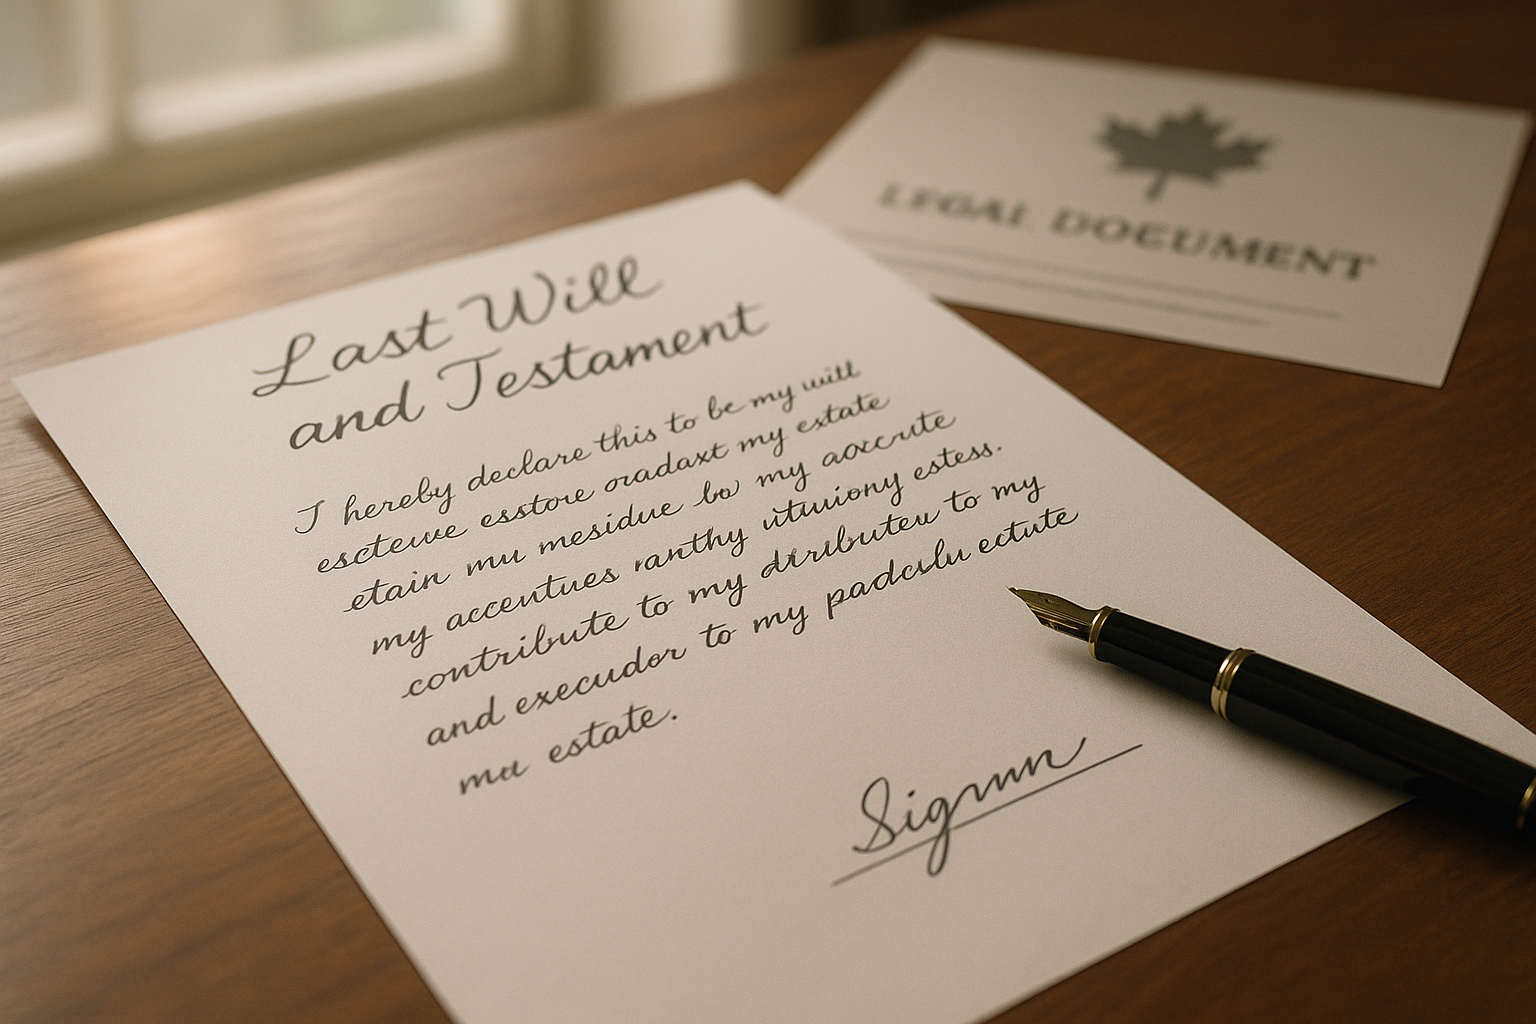 Last Will
and Testament
I hereby declare this to be my will
esctewe esstore oradaxt my extate
etain mu mesidue bo my aoxcrute
my accentues ranthy utuviony estess.
contribute to my dirributeu to my
and execudor to my padcslu ectute
mu estate.
Sigmnn
LEGAL DOCUMENT